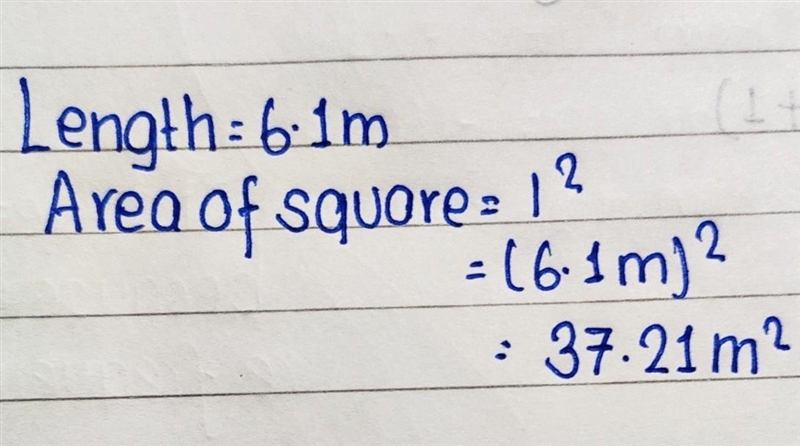 Length = 6.1m
(1+
Area of square = l²
= (6.1m)²
= 37.21m²